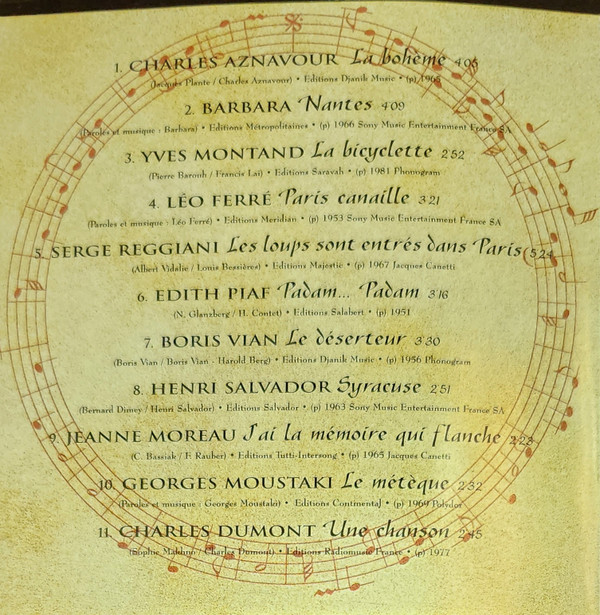 1. CHARLES AZNAVOUR La bohème 4'05
(Jacques Plante / Charles Aznavour) • Editions Djanik Music • (p) 1965
2. BARBARA Nantes 4'09
(Paroles et musique : Barbara) • Editions Métropolitaines • (p) 1966 Sony Music Entertainment France SA
3. YVES MONTAND La bicyclette 2'52
(Pierre Barouh / Francis Lai) • Editions Saravah • (p) 1981 Phonogram
4. LÉO FERRÉ Paris canaille 3'21
(Paroles et musique : Léo Ferré) • Editions Meridian • (p) 1953 Sony Music Entertainment France SA
5. SERGE REGGIANI Les loups sont entrés dans Paris 5'24
(Albert Vidalie / Louis Bessières) • Editions Majestic • (p) 1967 Jacques Canetti
6. EDITH PIAF Padam... Padam 3'16
(N. Glanzberg / H. Contet) • Editions Salabert • (p) 1951
7. BORIS VIAN Le déserteur 3'30
(Boris Vian / Boris Vian - Harold Berg) • Editions Djanik Music • (p) 1956 Phonogram
8. HENRI SALVADOR Syracuse 2'51
(Bernard Dimey / Henri Salvador) • Editions Salvador • (p) 1963 Sony Music Entertainment France SA
9. JEANNE MOREAU J'ai la mémoire qui flanche 2'23
(C. Bassiak / F. Rauber) • Editions Tutti-Intersong • (p) 1965 Jacques Canetti
10. GEORGES MOUSTAKI Le métèque 2'32
(Paroles et musique : Georges Moustaki) • Editions Continental • (p) 1969 Polydor
11. CHARLES DUMONT Une chanson 2'45
(Sophie Makhno / Charles Dumont) • Editions Radiomusic France • (p) 1977